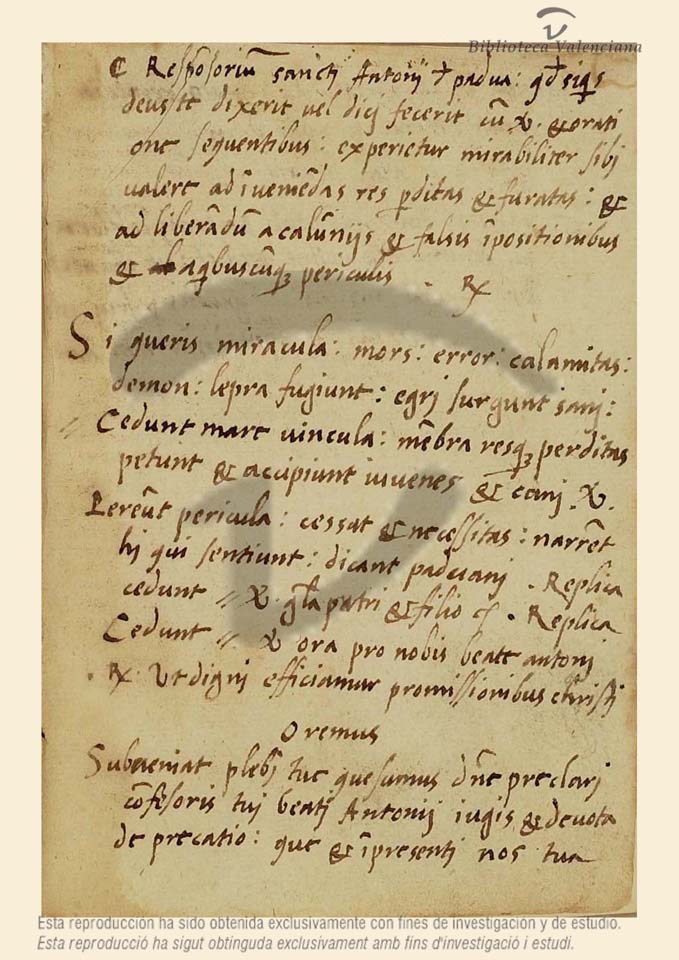 Biblioteca Valenciana
C Respōsoriū sancti Antonij + padua: qd siqs
deuste dixerit vel dicj fecerit cū ℣. & orati
one sequentibus: experietur mirabiliter sibj
valere ad īveniēdas res pditas & furatas: &
ad liberādū a calūnijs & falsis īpositionibus
& aqbuscūq3 periculis . ℟
Si queris miracula: mors: error: calamitas:
demon: lepra fugiunt: egrj surgunt sanj:
〃 Cedunt mare vincula: mēbra resq3 perditas
petunt & accipiunt iuvenes & canj. ℣.
Pereūt pericula: cessat & necessitas: narrēt
hj qui sentiunt: dicant paduanj . Replica
cedunt 〃 ℣. gla patri & filio . Replica
Cedunt 〃. ℣ ora pro nobis beate antonj
. ℟ Ut dignj efficiamur promissionibus christj
Oremus
Subveniat plebj tue quesumus dne preclarj
cōfesoris tuj beatj Antonij iugis & devota
de precatio: que & īpresentj nos tua
Esta reproducción ha sido obtenida exclusivamente con fines de investigación y de estudio.
Esta reproducció ha sigut obtinguda exclusivament amb fins d'investigació i estudi.